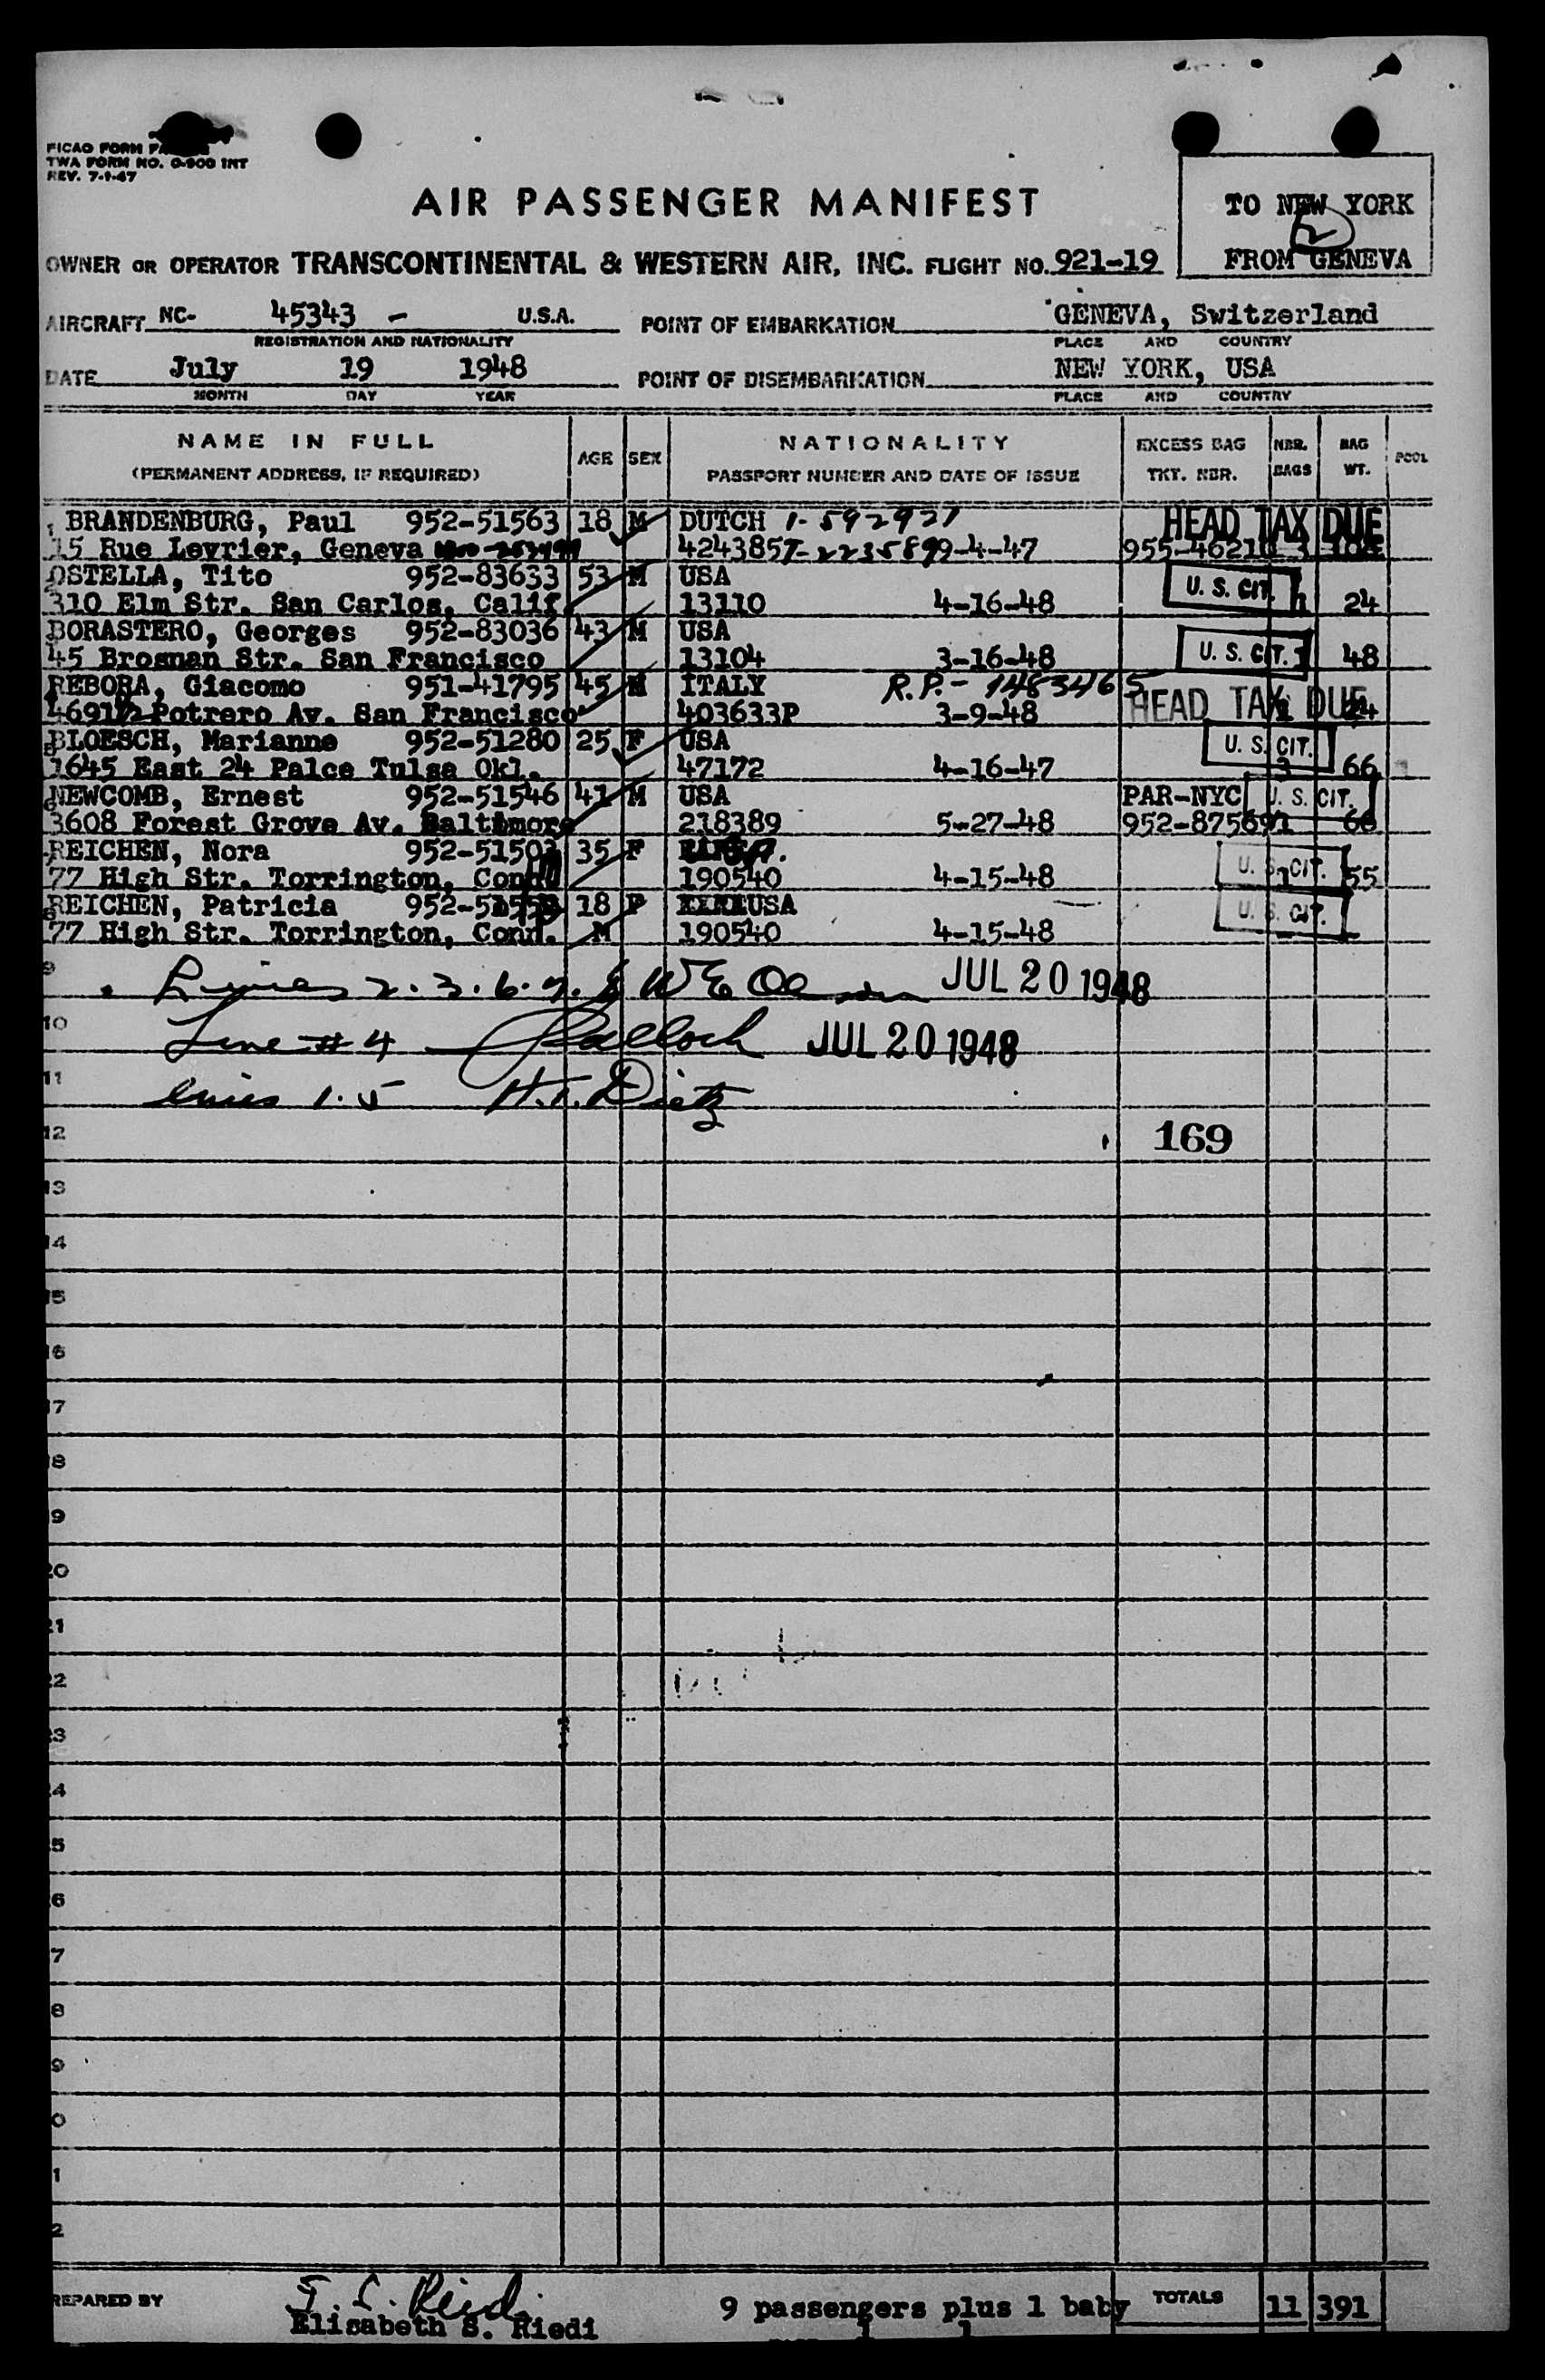 PICAO FORM
TWA FORM NO. 0-800 INT
REV. 7-1-47
AIR PASSENGER MANIFEST
TO NEW YORK
2
FROM GENEVA
OWNER OR OPERATOR TRANSCONTINENTAL & WESTERN AIR, INC. FLIGHT NO. 921-19
AIRCRAFT NC- 45343 - U.S.A. POINT OF EMBARKATION GENEVA, Switzerland
REGISTRATION AND NATIONALITY PLACE AND COUNTRY
DATE July 19 1948 POINT OF DISEMBARKATION NEW YORK, USA
MONTH DAY YEAR PLACE AND COUNTRY
NAME IN FULL AGE SEX NATIONALITY EXCESS BAG NBR. BAG POOL
(PERMANENT ADDRESS, IF REQUIRED) PASSPORT NUMBER AND DATE OF ISSUE TKT. NBR. BAGS WT.
1 BRANDENBURG, Paul 952-51563 18 M DUTCH 1-592921 HEAD TAX DUE
15 Rue Levrier, Geneva 424385 9-4-47 955-46210 3 104
OSTELLA, Tito 952-83633 53 M USA U. S. CIT.
310 Elm Str. San Carlos, Calif. 13110 4-16-48 1 24
BORASTERO, Georges 952-83036 43 M USA U. S. CIT.
45 Brosnan Str. San Francisco 13104 3-16-48 1 48
REBORA, Giacomo 951-41795 45 M ITALY R.P.- 1483465 HEAD TAX DUE
4691½ Potrero Av. San Francisco 403633P 3-9-48 24
BLOESCH, Marianne 952-51280 25 F USA U. S. CIT.
1645 East 24 Palce Tulsa Okl. 47172 4-16-47 3 66
NEWCOMB, Ernest 952-51546 41 M USA PAR-NYC U. S. CIT.
3608 Forest Grove Av. Baltimore 218389 5-27-48 952-87569 1 66
REICHEN, Nora 952-51503 35 F USA. U. S. CIT.
77 High Str. Torrington, Conn. 190540 4-15-48 1 55
REICHEN, Patricia 18 F USA U. S. CIT.
77 High Str. Torrington, Conn. M 190540 4-15-48
9 Lines 2.3.6.7.8 W E JUL 20 1948
10 Line #4 JUL 20 1948
11 lines 1.5 H.T. Dietz
12 169
13
14
15
16
17
18
19
20
21
22
23
4
5
6
7
8
9
0
1
2
REPARED BY Elisabeth S. Riedi 9 passengers plus 1 baby TOTALS 11 391
1 1